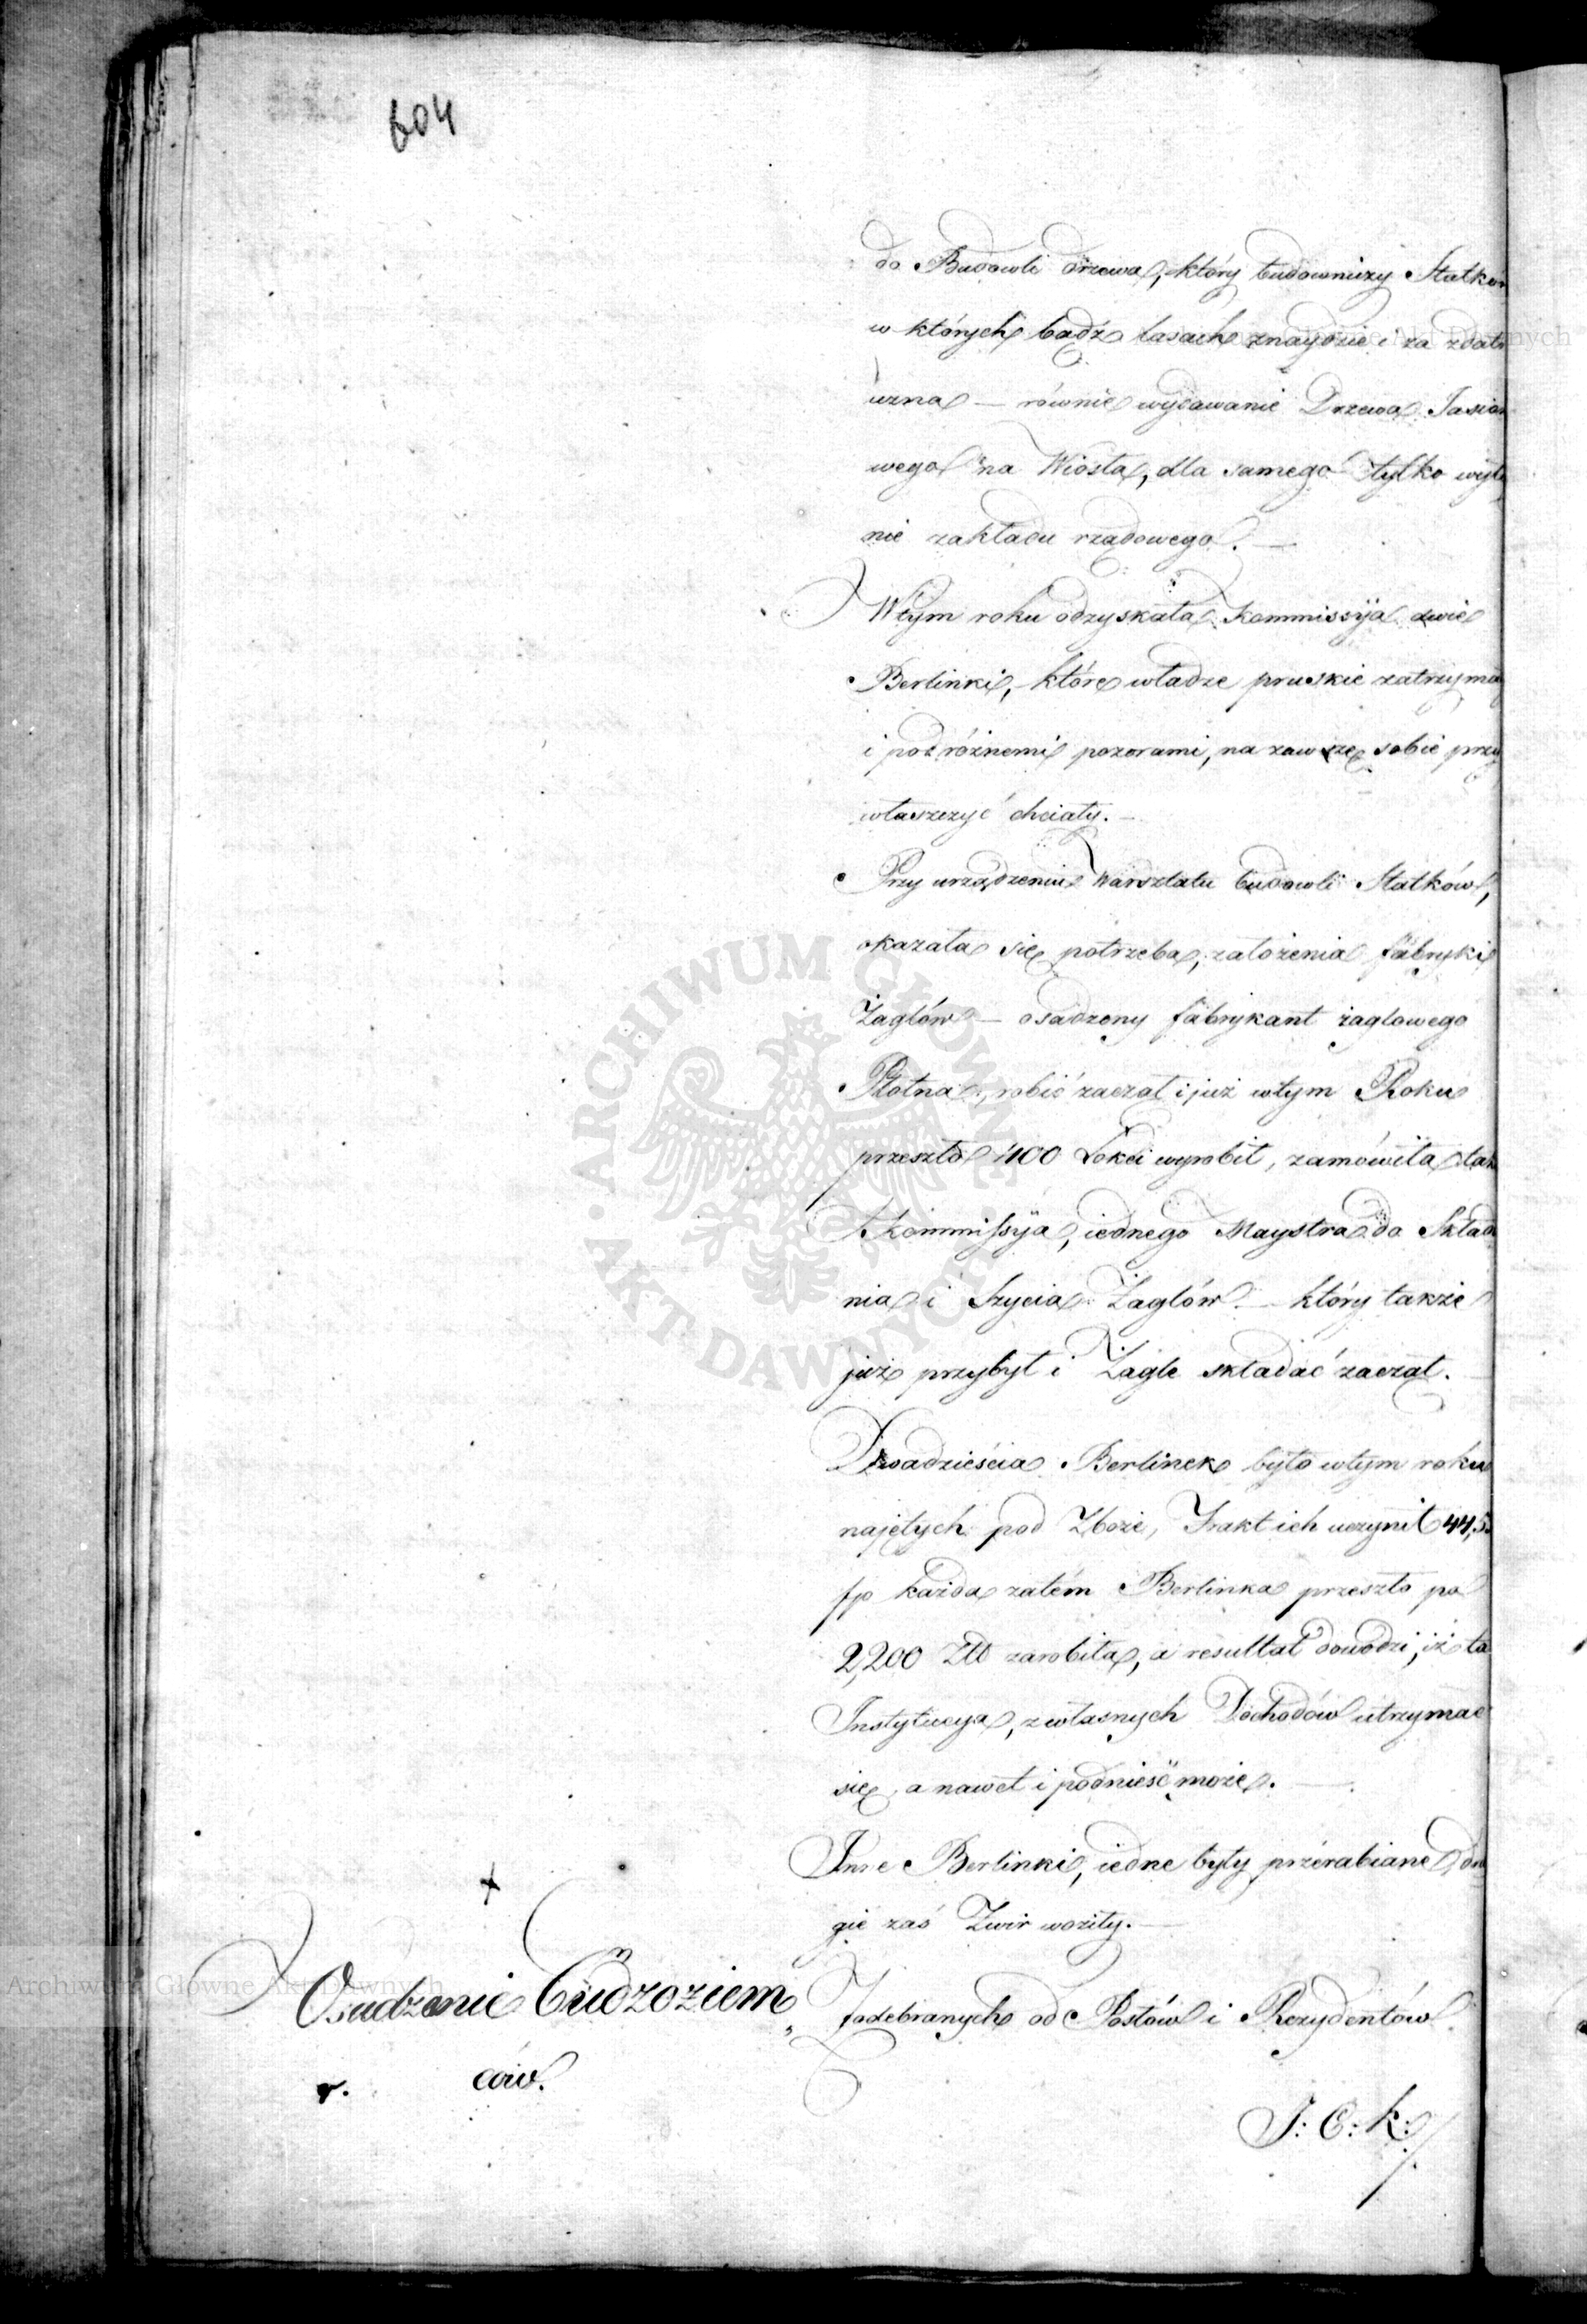 604
do Budowli drzewa, który budowniczy Statków
w których bądź lasach znaydzie i za zdatn
uzna — równie wydawanie Drzewa Jasio
wego na Wiosła, dla samego tylko wyłą
nie zakładu rządowego. —
Wtym roku odzyskała Kommissyja dwie
Berlinki, które władze pruskie zatrzyma
i pod różnemi pozorami, na zawsze sobie przy
właszczyć chciały. —
Przy urządzeniu Warsztatu budowli Statków,
okazała się potrzeba, założenia fabryki
Żaglów — osadzony fabrykant żaglowego
Płótna, robić zaczął i już wtym Roku
przeszło 400 Łokci wyrobił, zamówiła tak
Kommissyja, iednego Maystra do Składa
nia i Szycia Żaglów — który także
już przybył i Żagle składać zaczął.
Dwadzieścia Berlinek było wtym roku
najętych pod Zboże, Frakt ich uczynił 44,5
fp każda zatém Berlinka przeszło po
2,200 Złł zarobiła, a resultat dowodzi, iż ta
Instytucya, zwłasnych Dochodów utrzymać
się, a nawet i podnieść może. —
Inne Berlinki, iedne były przerabiane, dru
gie zaś Żwir woziły. —
Osadzenie Cudzoziem„
ców.
Z odebranych od Posłów i Rezydentów
J: C: K:
Archiwum Główne Akt Dawnych
ARCHIWUM GŁÓWNE AKT DAWNYCH